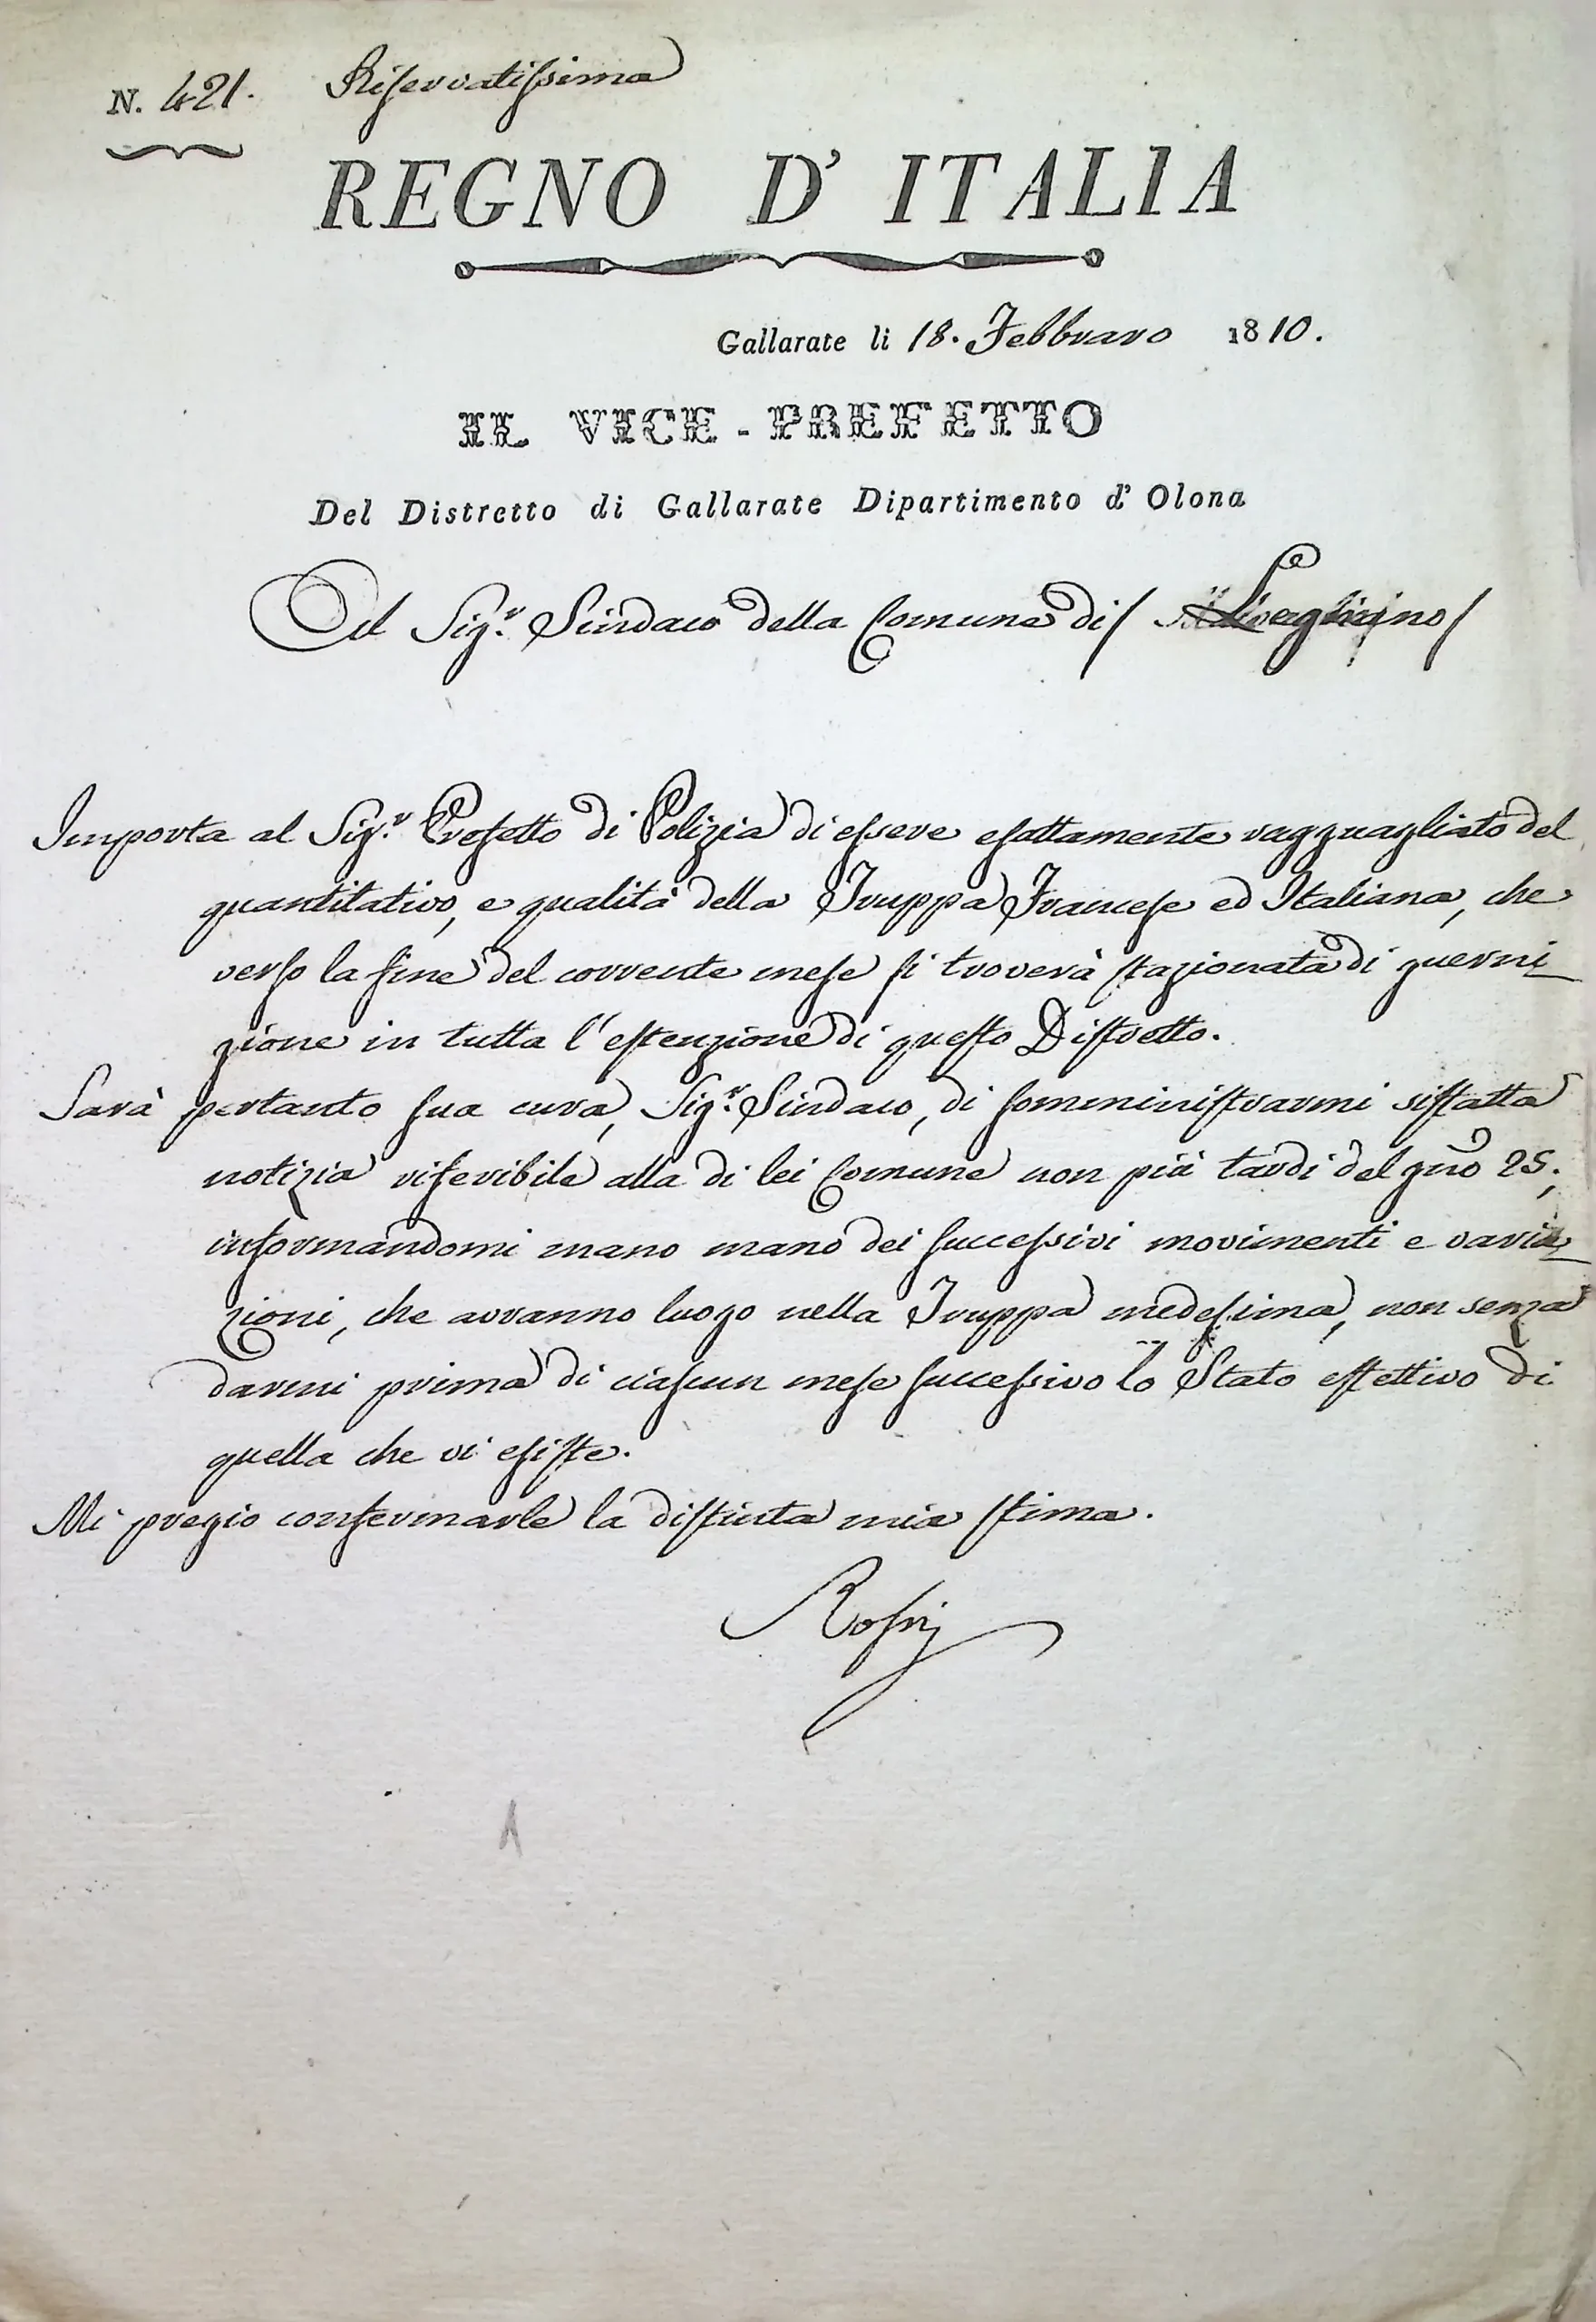 N. 421. Riservatissima
REGNO D' ITALIA
Gallarate li 18. Febbraro 1810.
IL VICE-PREFETTO
Del Distretto di Gallarate Dipartimento d' Olona
Al Sig.r Sindaco della Comune di
Importa al Sig.r Prefetto di Polizia di essere esattamente ragguagliato del
quantitativo, e qualità della Truppa Francese ed Italiana, che
verso la fine del corrente mese si troverà stazionata di guerni
zione in tutta l'estenzione di questo Distretto.
Sarà pertanto sua cura, Sig.r Sindaco, di somministrarmi siffatta
notizia riferibile alla di lei Comune non più tardi del gno 25,
informandomi mano mano dei successivi movimenti e varia
zioni, che avranno luogo nella Truppa medesima, non senza
darmi prima di ciascun mese successivo lo Stato effettivo di
quella che vi esiste.
Mi pregio confermarle la distinta mia stima.
Rossi